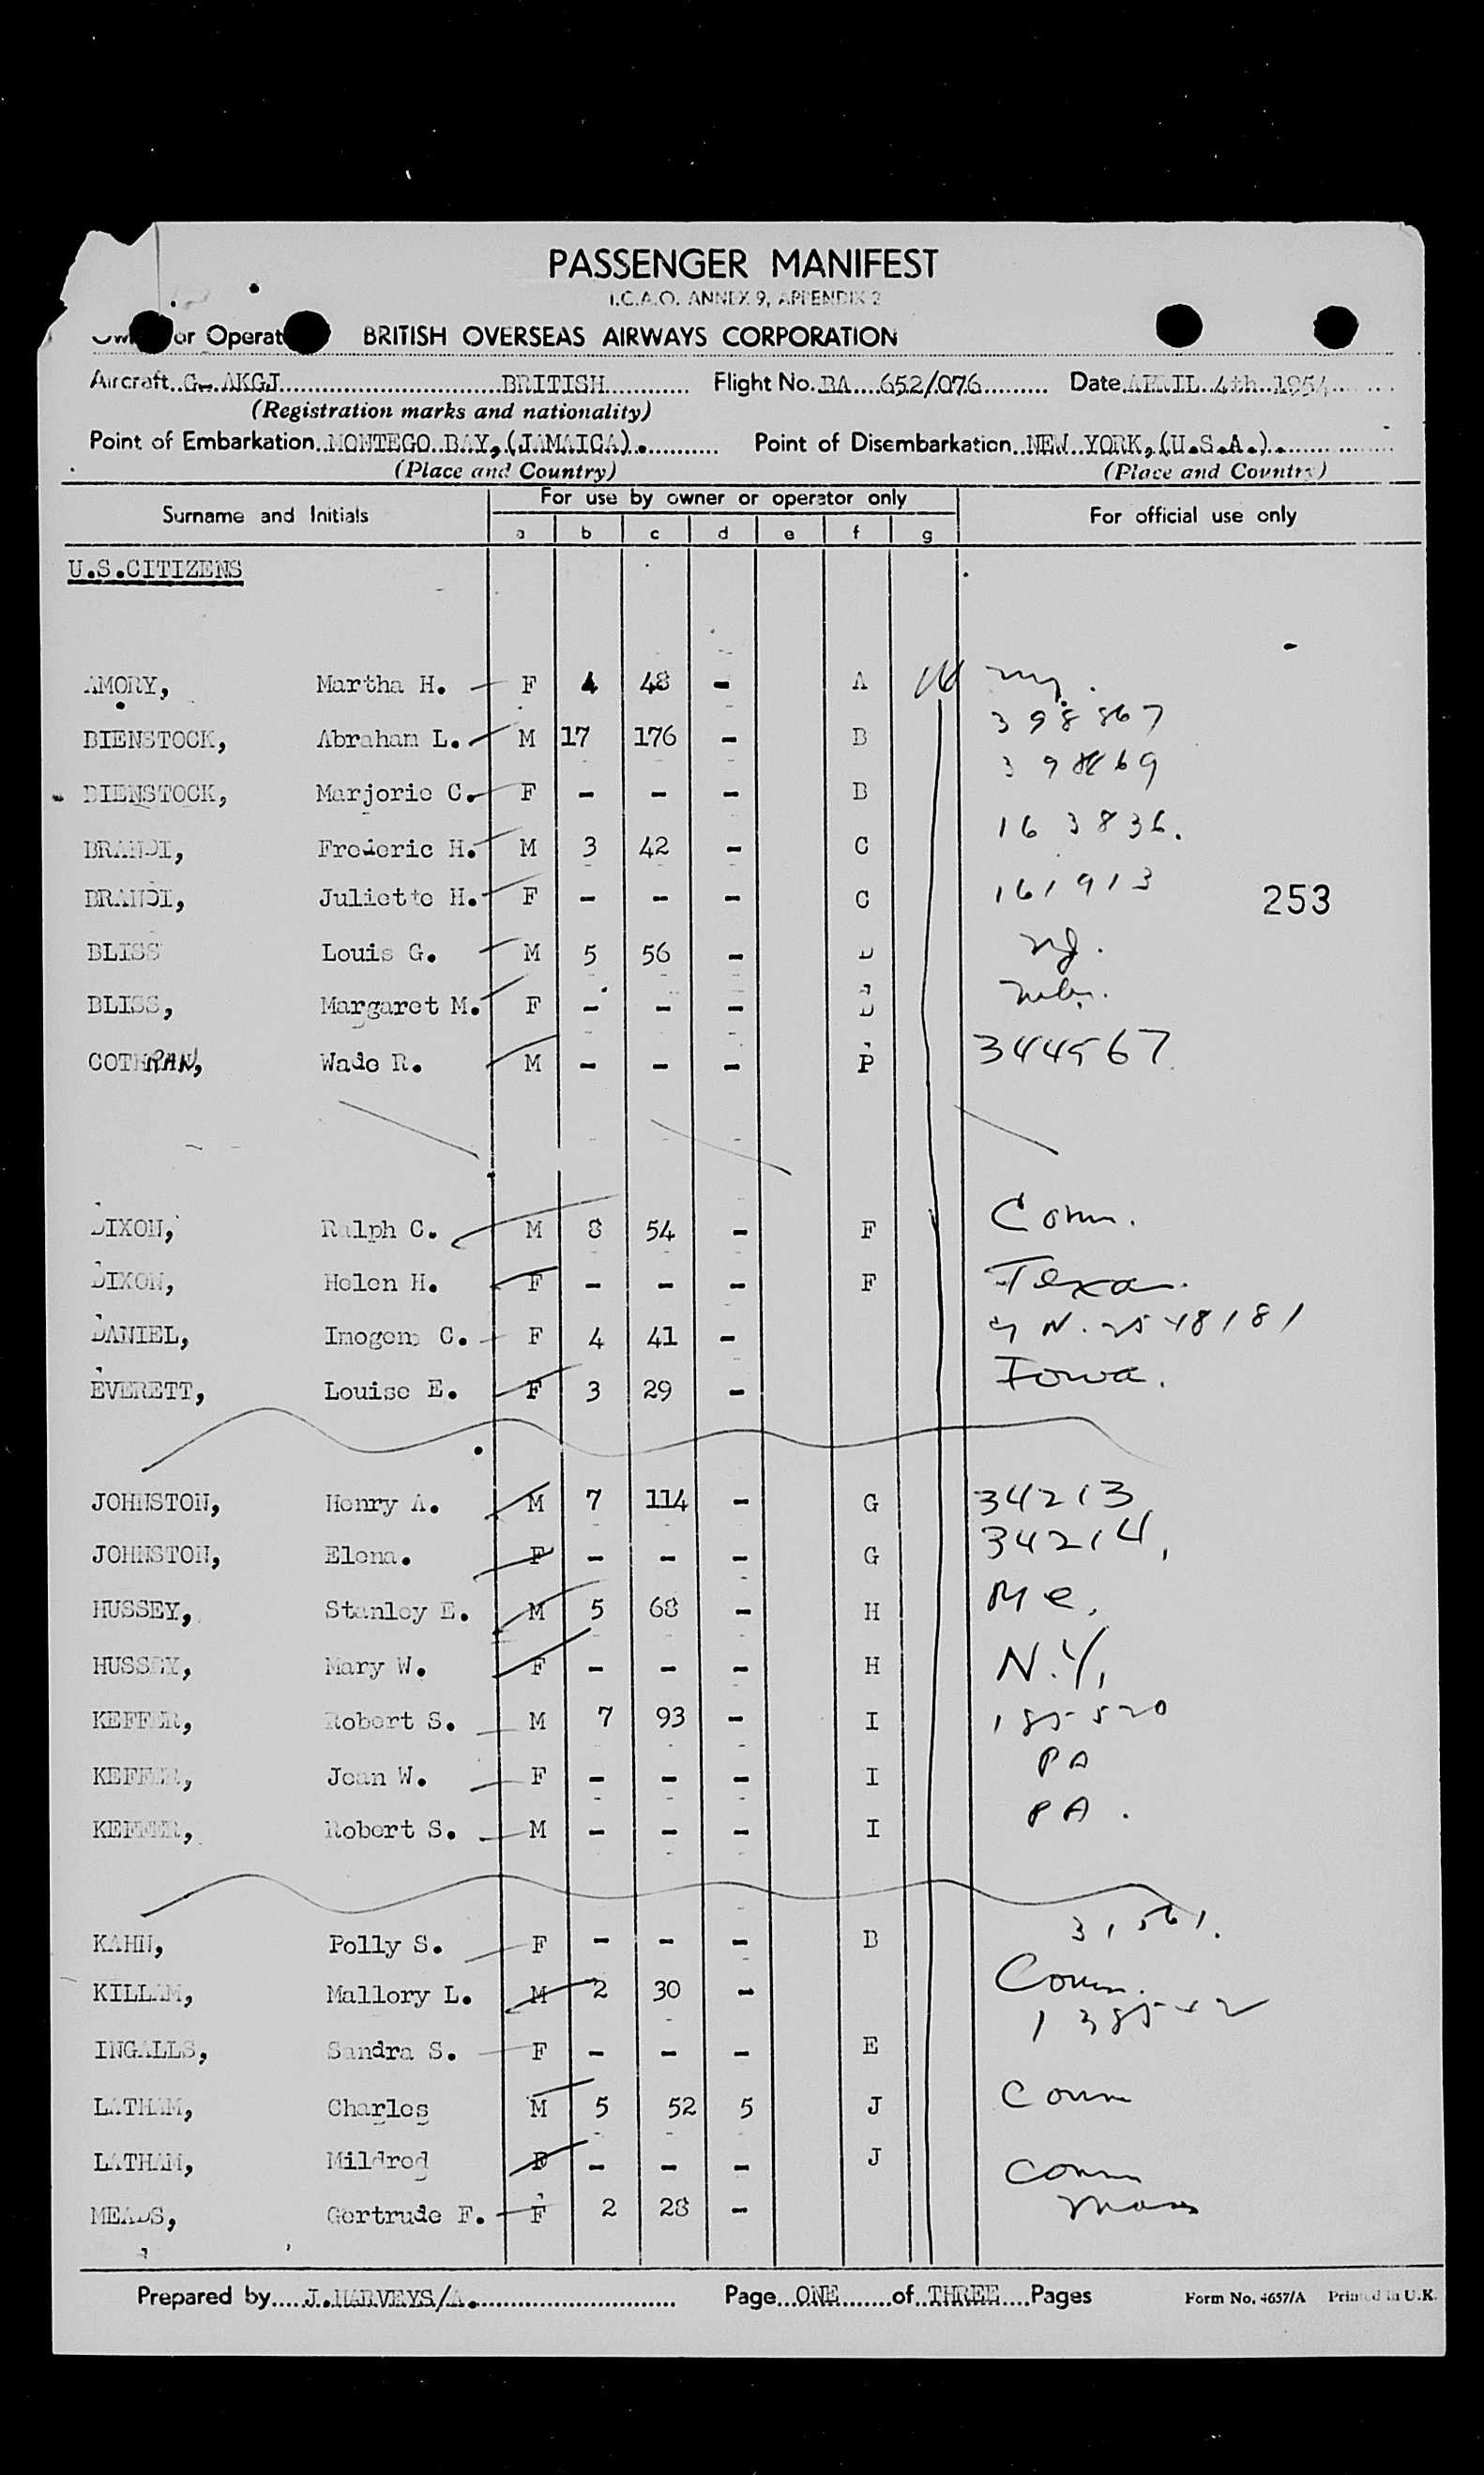 PASSENGER MANIFEST
I.C.A.O. ANNEX 9, APPENDIX 2
or Operat BRITISH OVERSEAS AIRWAYS CORPORATION
Aircraft G- AKGJ BRITISH Flight No. BA 652/076 Date APRIL 4th 1954
(Registration marks and nationality)
Point of Embarkation MONTEGO BAY, (JAMAICA). Point of Disembarkation NEW YORK, (U.S.A.).
(Place and Country) (Place and Country)
Surname and Initials For use by owner or operator only For official use only
a b c d e f g
U.S.CITIZENS
AMORY, Martha H. F 4 48 - A
BIENSTOCK, Abraham L. M 17 176 - B 398867
BIENSTOCK, Marjorie C. F - - - B
BRANDI, Frederic H. M 3 42 - C 163836.
BRANDI, Juliette H. F - - - C 161913
253
BLISS Louis G. M 5 56 - D
BLISS, Margaret M. F - - - D
COTHRAN, Wade R. M - - - P 344567
DIXON, Ralph C. M 8 54 - F Conn.
DIXON, Helen H. F - - - F Texas.
DANIEL, Imogene C. F 4 41 -
EVERETT, Louise E. F 3 29 - Iowa.
JOHNSTON, Henry A. M 7 114 - G 34213
JOHNSTON, Elena. F - - - G 34214,
HUSSEY, Stanley E. M 5 68 - H Me,
HUSSEY, Mary W. F - - - H N.Y,
KEFFER, Robert S. M 7 93 - I 185520
KEFFER, Jean W. F - - - I PA
KEFFER, Robert S. M - - - I PA.
KAHN, Polly S. F - - - B 31561.
KILLAM, Mallory L. M 2 30 - Conn.
INGALLS, Sandra S. F - - - E
LATHAM, Charles M 5 52 5 J Conn
LATHAM, Mildred F - - - J Conn
MEADS, Gertrude F. F 2 28 - Mass
Prepared by J.HARVEYS/A. Page ONE of THREE Pages Form No. 4657/A Printed in U.K.